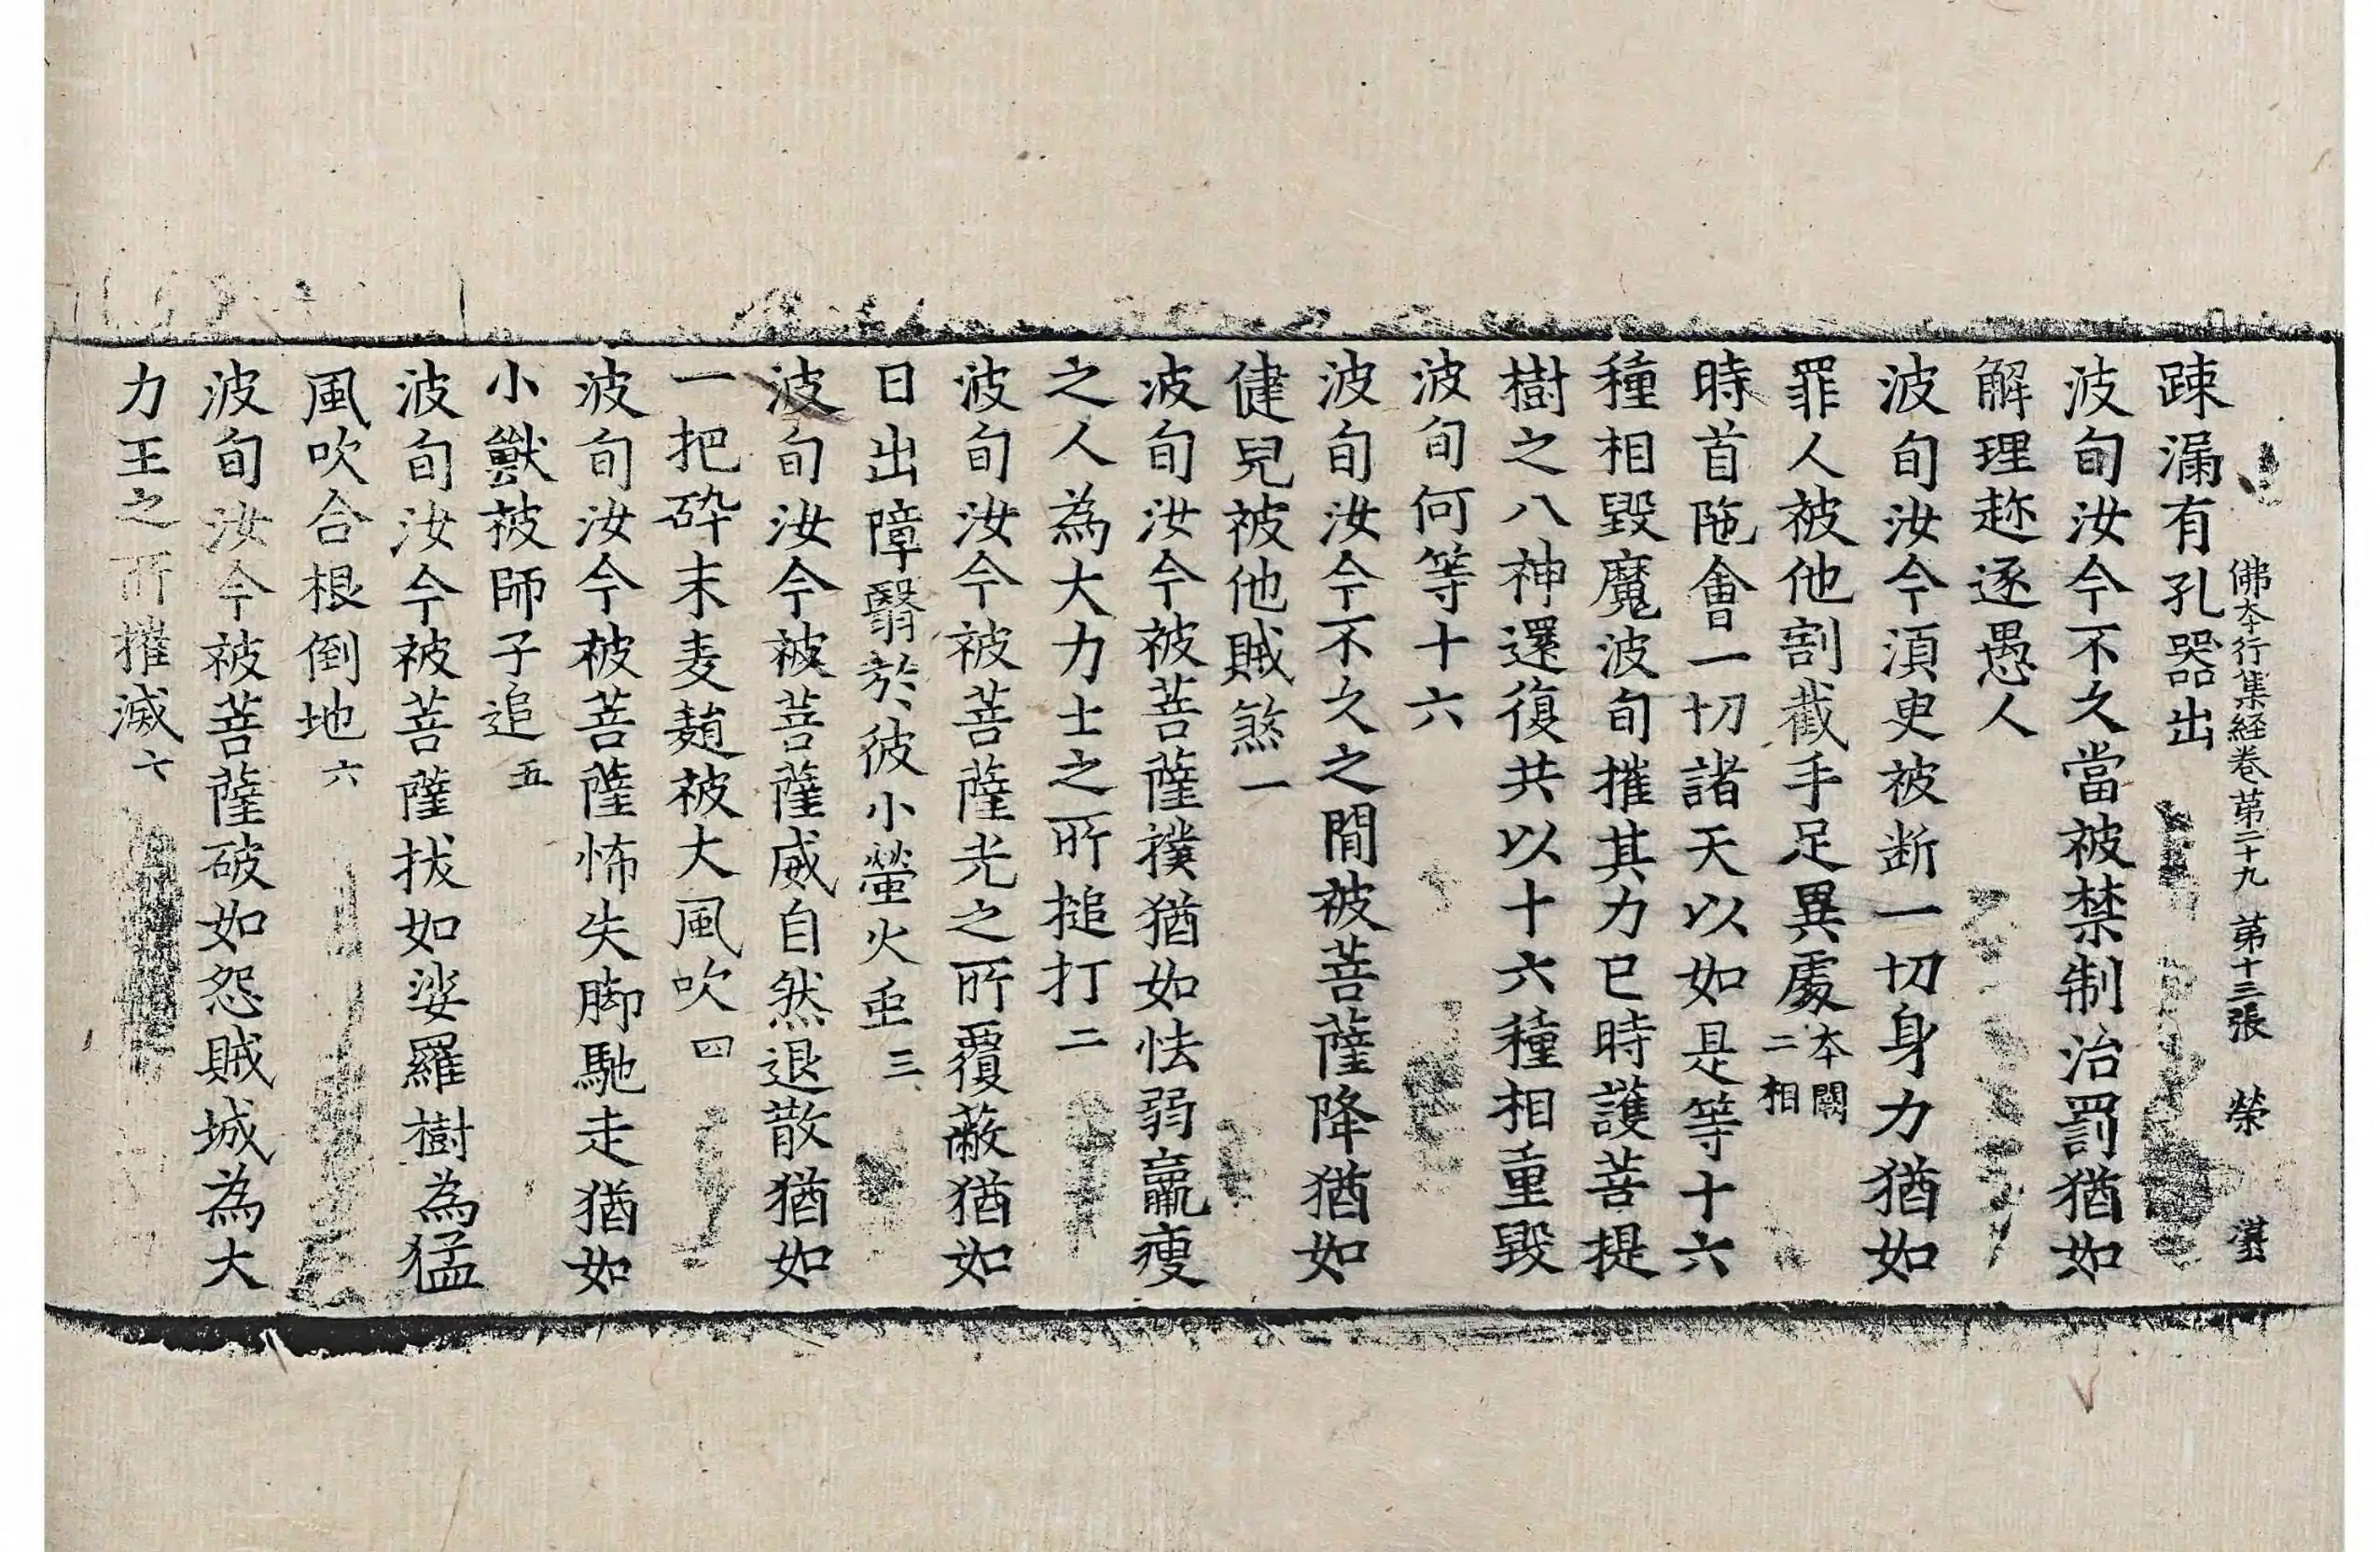 佛本行集経巻苐二十九 苐十三張 榮 湛
踈漏有孔器出
波旬汝今不久當被禁制治罰猶如
解理趂逐愚人
波旬汝今湏臾被断一切身力猶如
罪人被他割截手足異處本闕二相
時首陁會一切諸天以如是等十六
種相毀魔波旬摧其力已時護菩提
樹之八神還復共以十六種相重毀
波旬何等十六
波旬汝今不久之閒被菩薩降猶如
健兒被他賊煞一
波旬汝今被菩薩撲猶如怯弱羸瘦
之人為大力士之所搥打二
波旬汝今被菩薩光之所覆蔽猶如
日出障翳於彼小螢火虫三
波旬汝今被菩薩威自然退散猶如
一把碎末麦䴬被大風吹四
波旬汝今被菩薩怖失脚馳走猶如
小獸被師子追五
波旬汝今被菩薩拔如娑羅樹為猛
風吹合根倒地六
波旬汝今被菩薩破如怨賊城為大
力王之所摧滅七